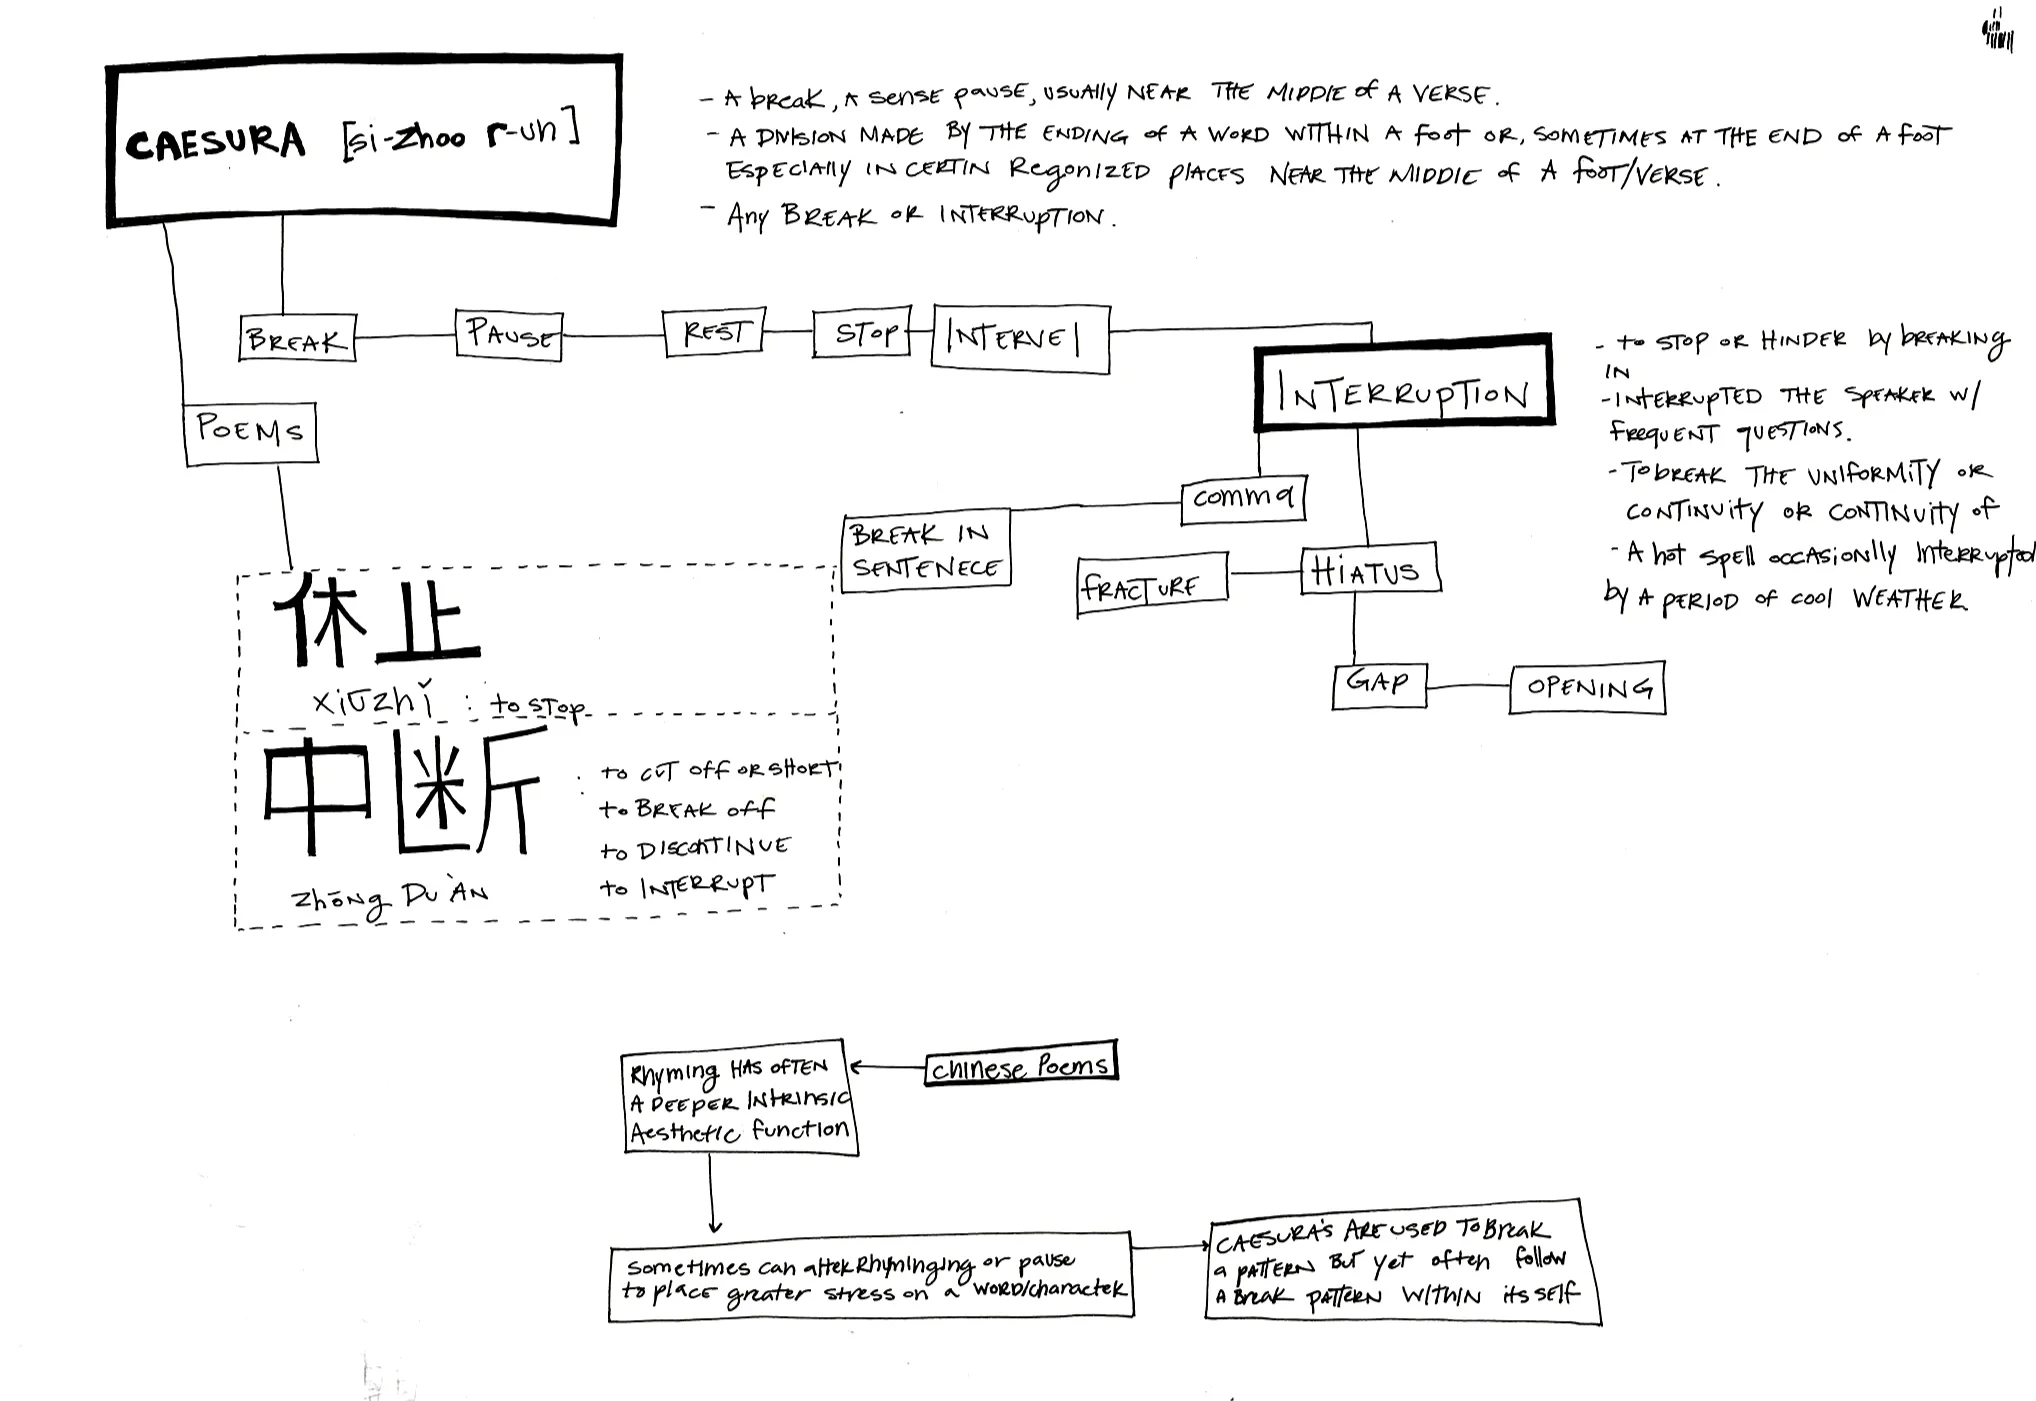 CAESURA [si-zhoo r-uh]
- A break, A sense pause, usually NEAR THE MIDDLE of A VERSE.
- A DIVISION MADE By THE ENDING of A WORD WITHIN A foot OR, SOMETIMES AT THE END of A foot
ESPECIAlly IN CERTIN RegoNIZED plACES NEAR THE MIDDLE of A fooT/VERSE.
- Any BREAK OR INTERRUPTION.
BREAK
PAUSE
REST
STOP
INTERVEl
INTERRUPTION
- to STOP OR HINDER by bREAKING
IN
- INTERRUPTED THE SPEAKER W/
fREquENT QUESTIONS.
- TO bREAK THE UNIfORMITY OR
CONTINUITY OR CONTINUITY of
- A hot spell occAsionlly INTERRupted
by A PERIOD of cool WEATHER
POEMS
comma
BREAK IN
SENTENECE
fRACTURE
HIATUS
GAP
OPENING
休止
xiūzhǐ : to STOP
中断
: to CUT Off OR SHORT
to BREAK off
to DISCONTINUE
to INTERRUPT
zhōNg DU ÀN
chinese Poems
Rhyming HAS OfTEN
A DEEPER INtRINSIC
Aesthetic function
Sometimes can alter Rhyminging or pause
to place greater stress on a WORD/character
CAESURA's ARE USED To Break
a pATTERN But yet often follow
A Break pATTERN WITHIN its sElf